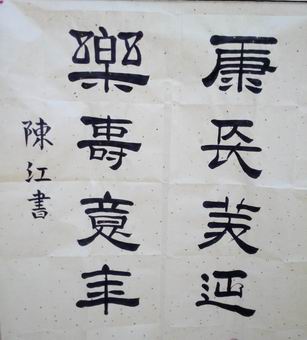 康樂
長壽
美意
延年
陳江書